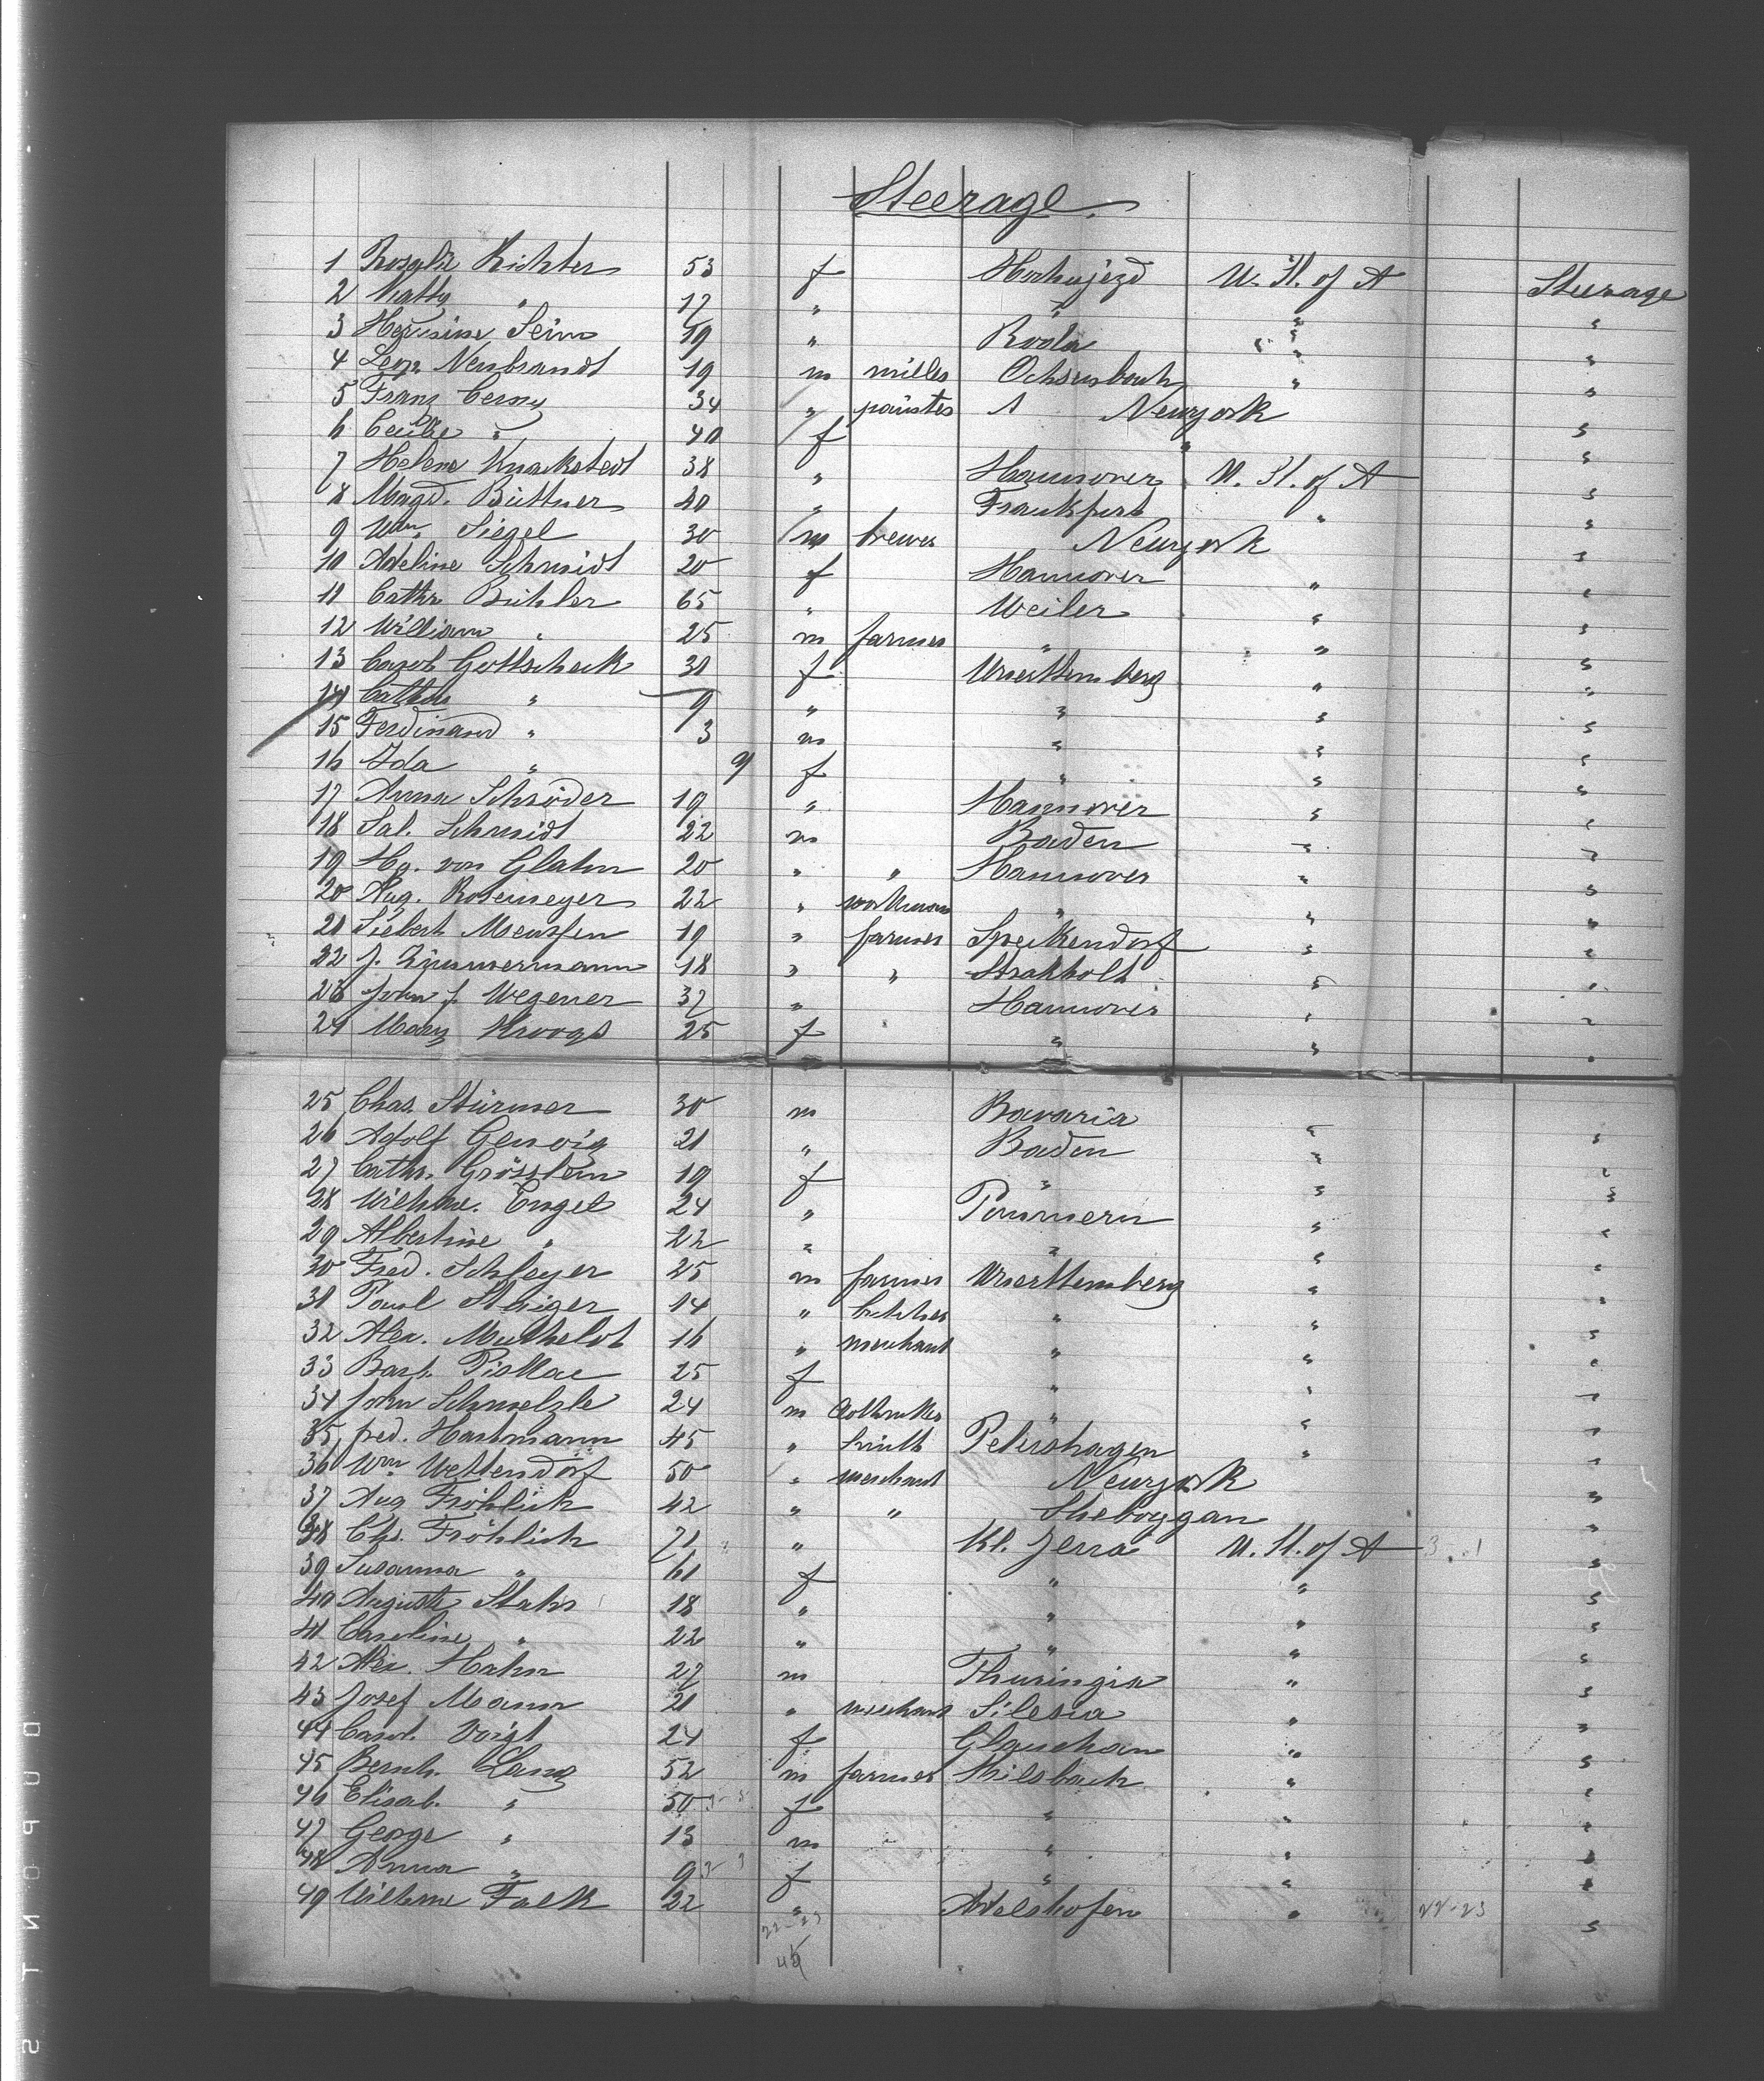 Steerage.
1 Rosalie Richter 53 f U. St. of A Steerage
2 " 17 " " " "
3 19 " Roda " "
4 Neubrandt 19 m miller Ochsenbach " "
5 Franz Cerny 34 " painter Newyork "
6 " 40 f " "
7 Helene Knackstedt 38 " Hannover U. St. of A "
8 Magd. Büttner 40 " Frankfurt " "
9 Wm. Siegel 30 m brewer Newyork "
10 Adeline Schmidt 20 f Hannover " "
11 Cathr. Bühler 65 " Weiler " "
12 William " 25 m farmer " " "
13 31 f Wuerttemberg " "
14 " 9 " " " "
15 Ferdinand " 3 m " " "
16 Ida " 9 f " " "
17 Anna Schröder 19 " Hannover " "
18 Sal. Schmidt 22 m Baden " "
19 Hg. von Glahn 20 " " Hannover " "
20 Aug. Rosemeyer 22 " workman " " "
21 Siebert 19 " farmer " "
22 J. Zimmermann 18 " " Strakholt " "
23 John J. Wegener 37 " Hannover " "
24 Mary 25 f " " "
25 Chas. Stürmer 30 m Bavaria " "
26 Adolf 21 " Baden " "
27 Cathr. 19 f " " "
28 Wilhme. Engel 24 " Pommern " "
29 Albertine " 22 " " " "
30 Fred. Schleyer 25 m farmer Wuerttemberg " "
31 Paul Staiger 14 " butcher " " "
32 Alex. 16 " merchant " " "
33 Barb. 25 f " " "
34 John Schmelzle 24 m " " "
35 fred. Hartmann 45 " smith Petershagen " "
36 Wm. Wettendorf 50 " merchant Newyork "
37 Aug Fröhlich 42 " " Sheboygan "
38 Chs. Fröhlich 71 " Kl. Jena U. St. of A "
39 Susanna " 61 f " " "
40 Auguste 18 " " " "
41 Caroline " 22 " " " "
42 Alex. Hahn 27 m Thuringia " "
43 Josef Mann 21 " merchant Silesia " "
44 Carol. Voigt 24 f Glauchau " "
45 Bernh. Lang 52 m farmer Hilsbach " "
46 Elisab. " 50 f " " "
47 George " 13 m " " "
48 Anna " 9 f " " "
49 Wilhme Falk 22 " Adelshofen " " 22-23
22-23
45